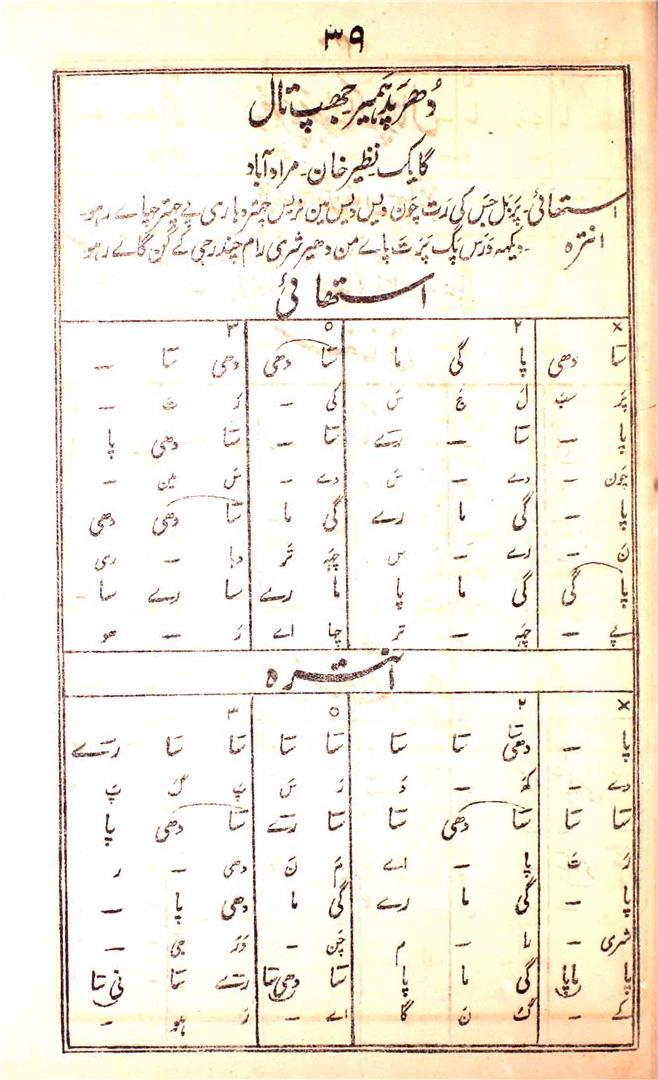 ۳۹
دُھرپد ہمیر جھپ تال
گایک نظیر خان۔ مراد آباد
استھائی۔ پربل جس کی رت چون دیس دیس مین نریس چھتر دہاری پے چھتر چھاے رہو۔
انترہ ۔ دیکہہ درس پگ پرت پاے من دھیر شری رام چندر جی کے گن گاے رہو
استھائی
× ۲ ۵ ۳
سا دھی پا گی ما سا دھی دھی سا –
پر ب ل ج س کی – ر ت –
– سا – رے سا – سا دھی پا
چون – دے – س دے – س مین –
– گی ما رے گی ما سا دھی دھی
ن – رے – س چھ تر دہا – ری
گی گی ما پا ما رے سا رے سا
پے – چھ – تر چھا اے ر – هو
انترہ
× ۲ ۵ ۳
– دھی سا سا سا سا سا سا رے
دے – کہہ – د ر س پ گ پ
سا سا سا دھی سا سا رے سا دھی پا
ر ت پا – اے م ن دھی – ر
– گی ما رے گی ما دھی پا –
شری – را – م چن – در جی –
پاپا گی ما پا سا دھی سا رے سا نی سا
کے – گ ن گا اے – ر ہو –